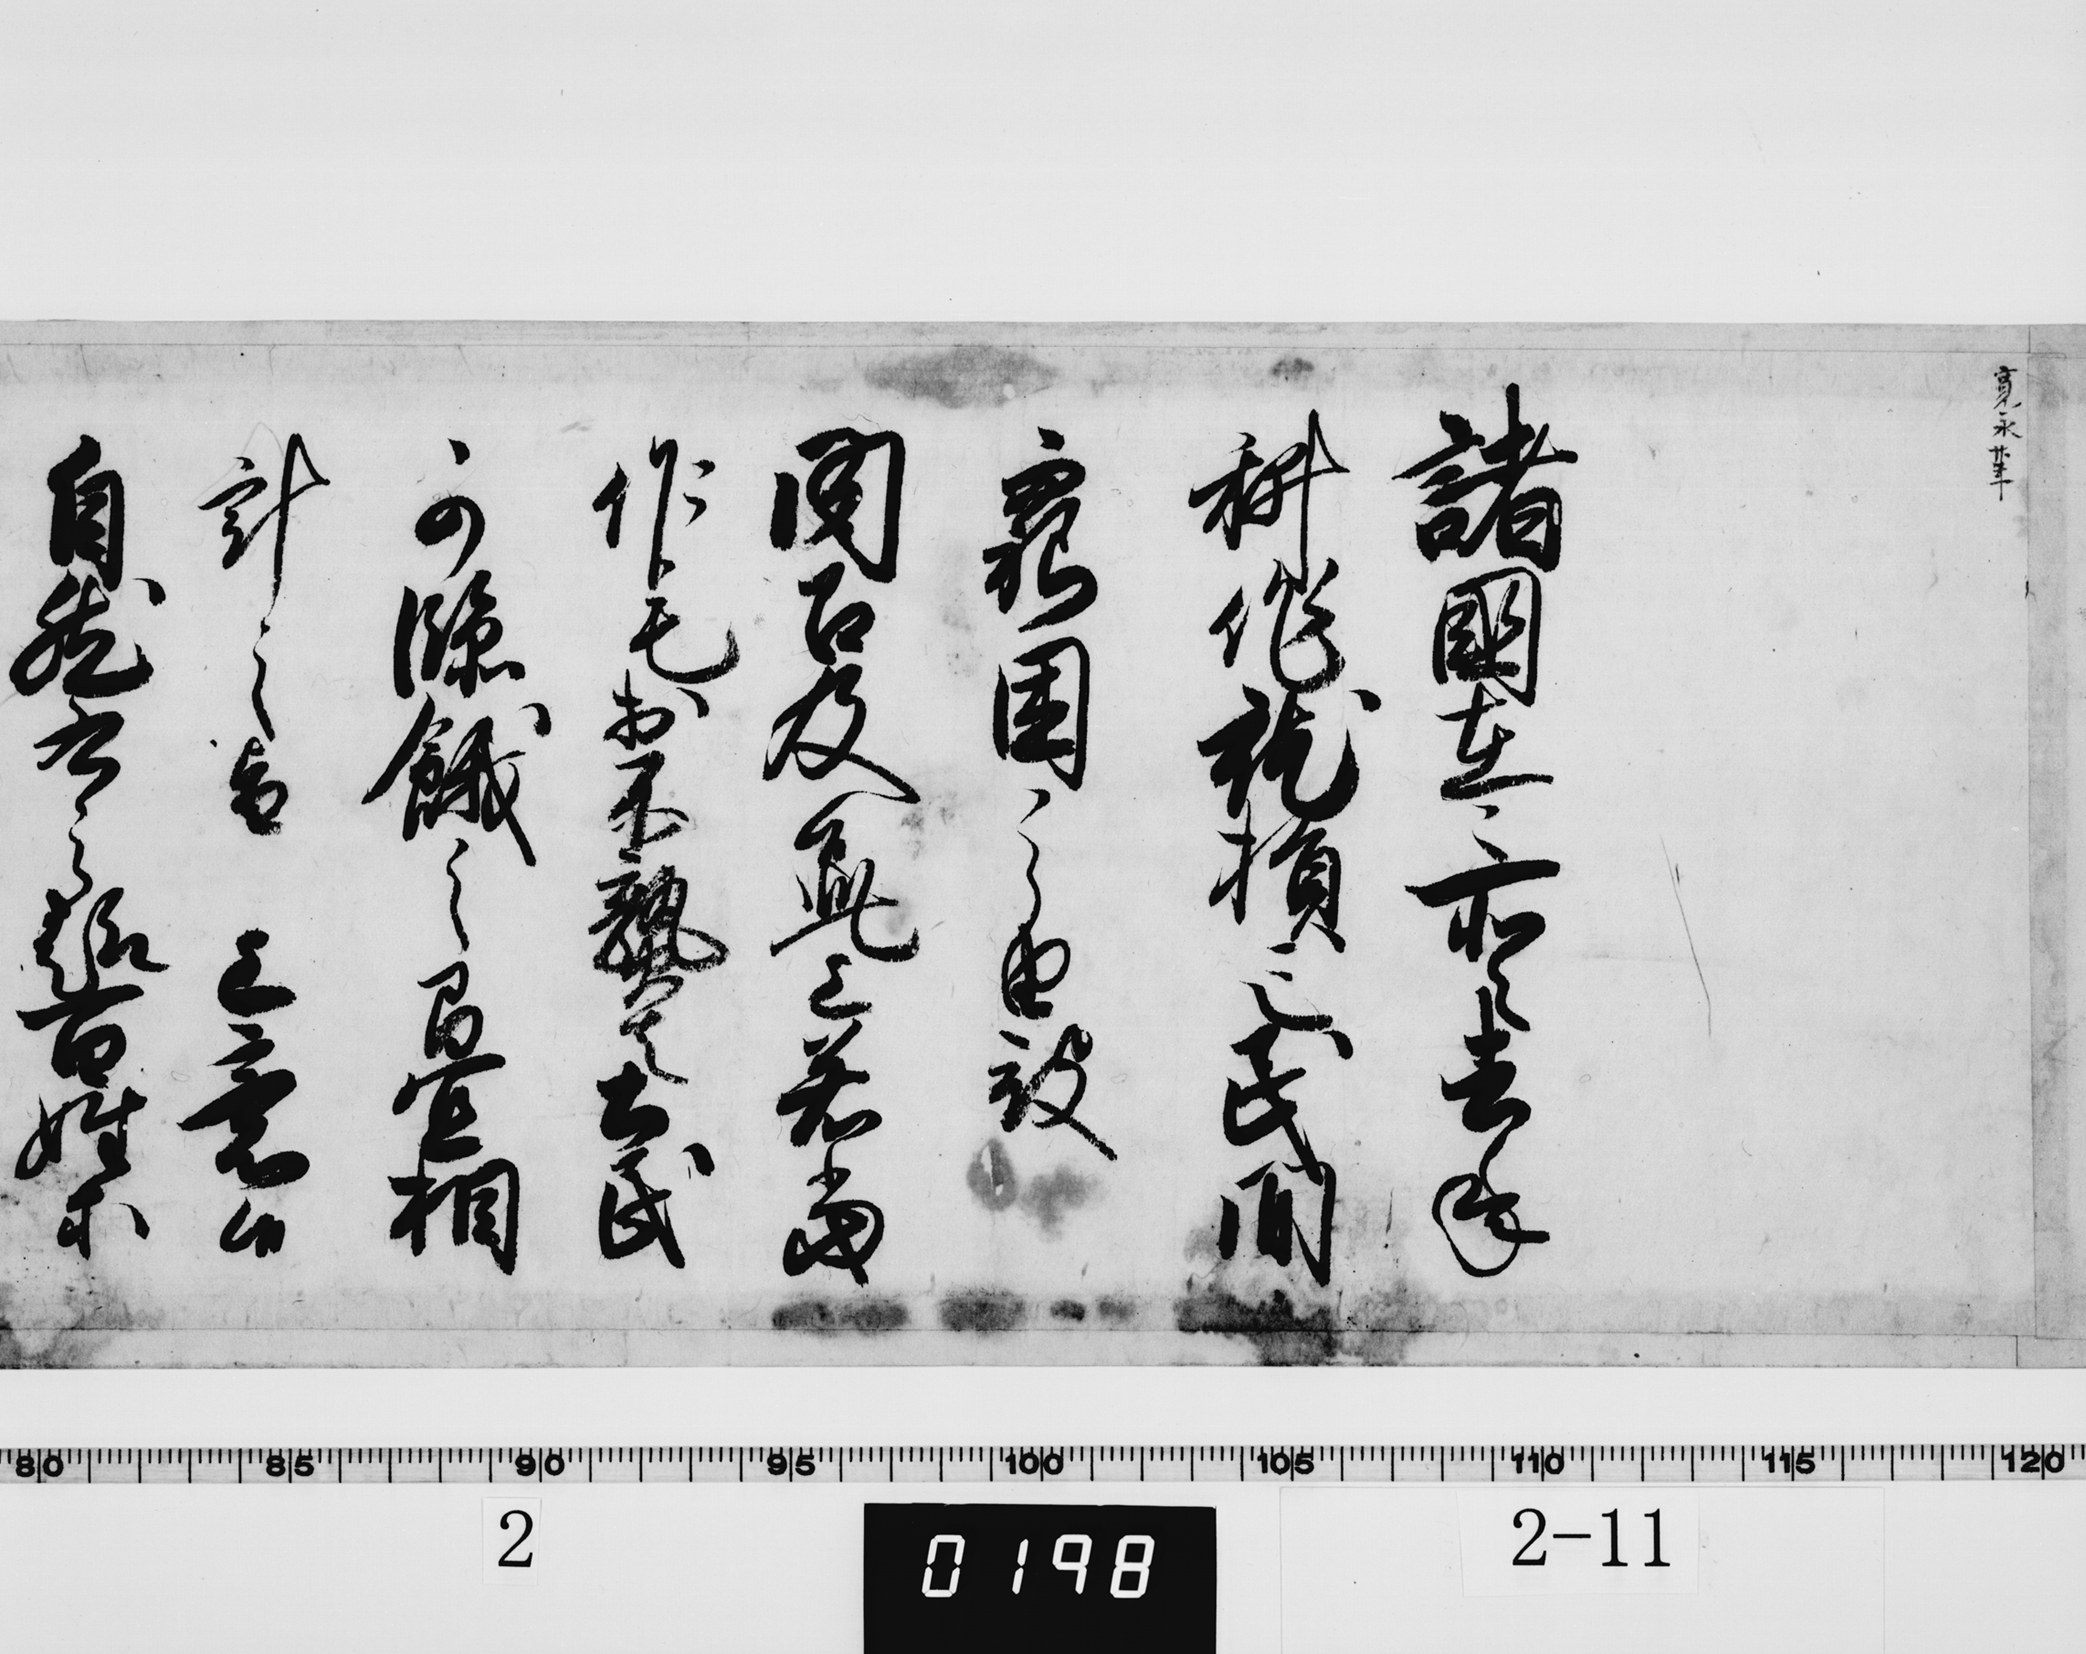 寛永廿年
諸國在々所々去年
耕作就損亡民間
窮困之由被
聞召及此上若當
作毛於不熟者土民
可臨餓之間宜相
計之旨 上意候
自然右之趣百姓等
80 85 90 95 100 105 110 115 120
2
0198
2-11